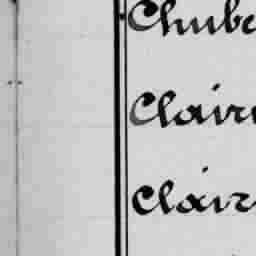 Chube
Clair
Clair